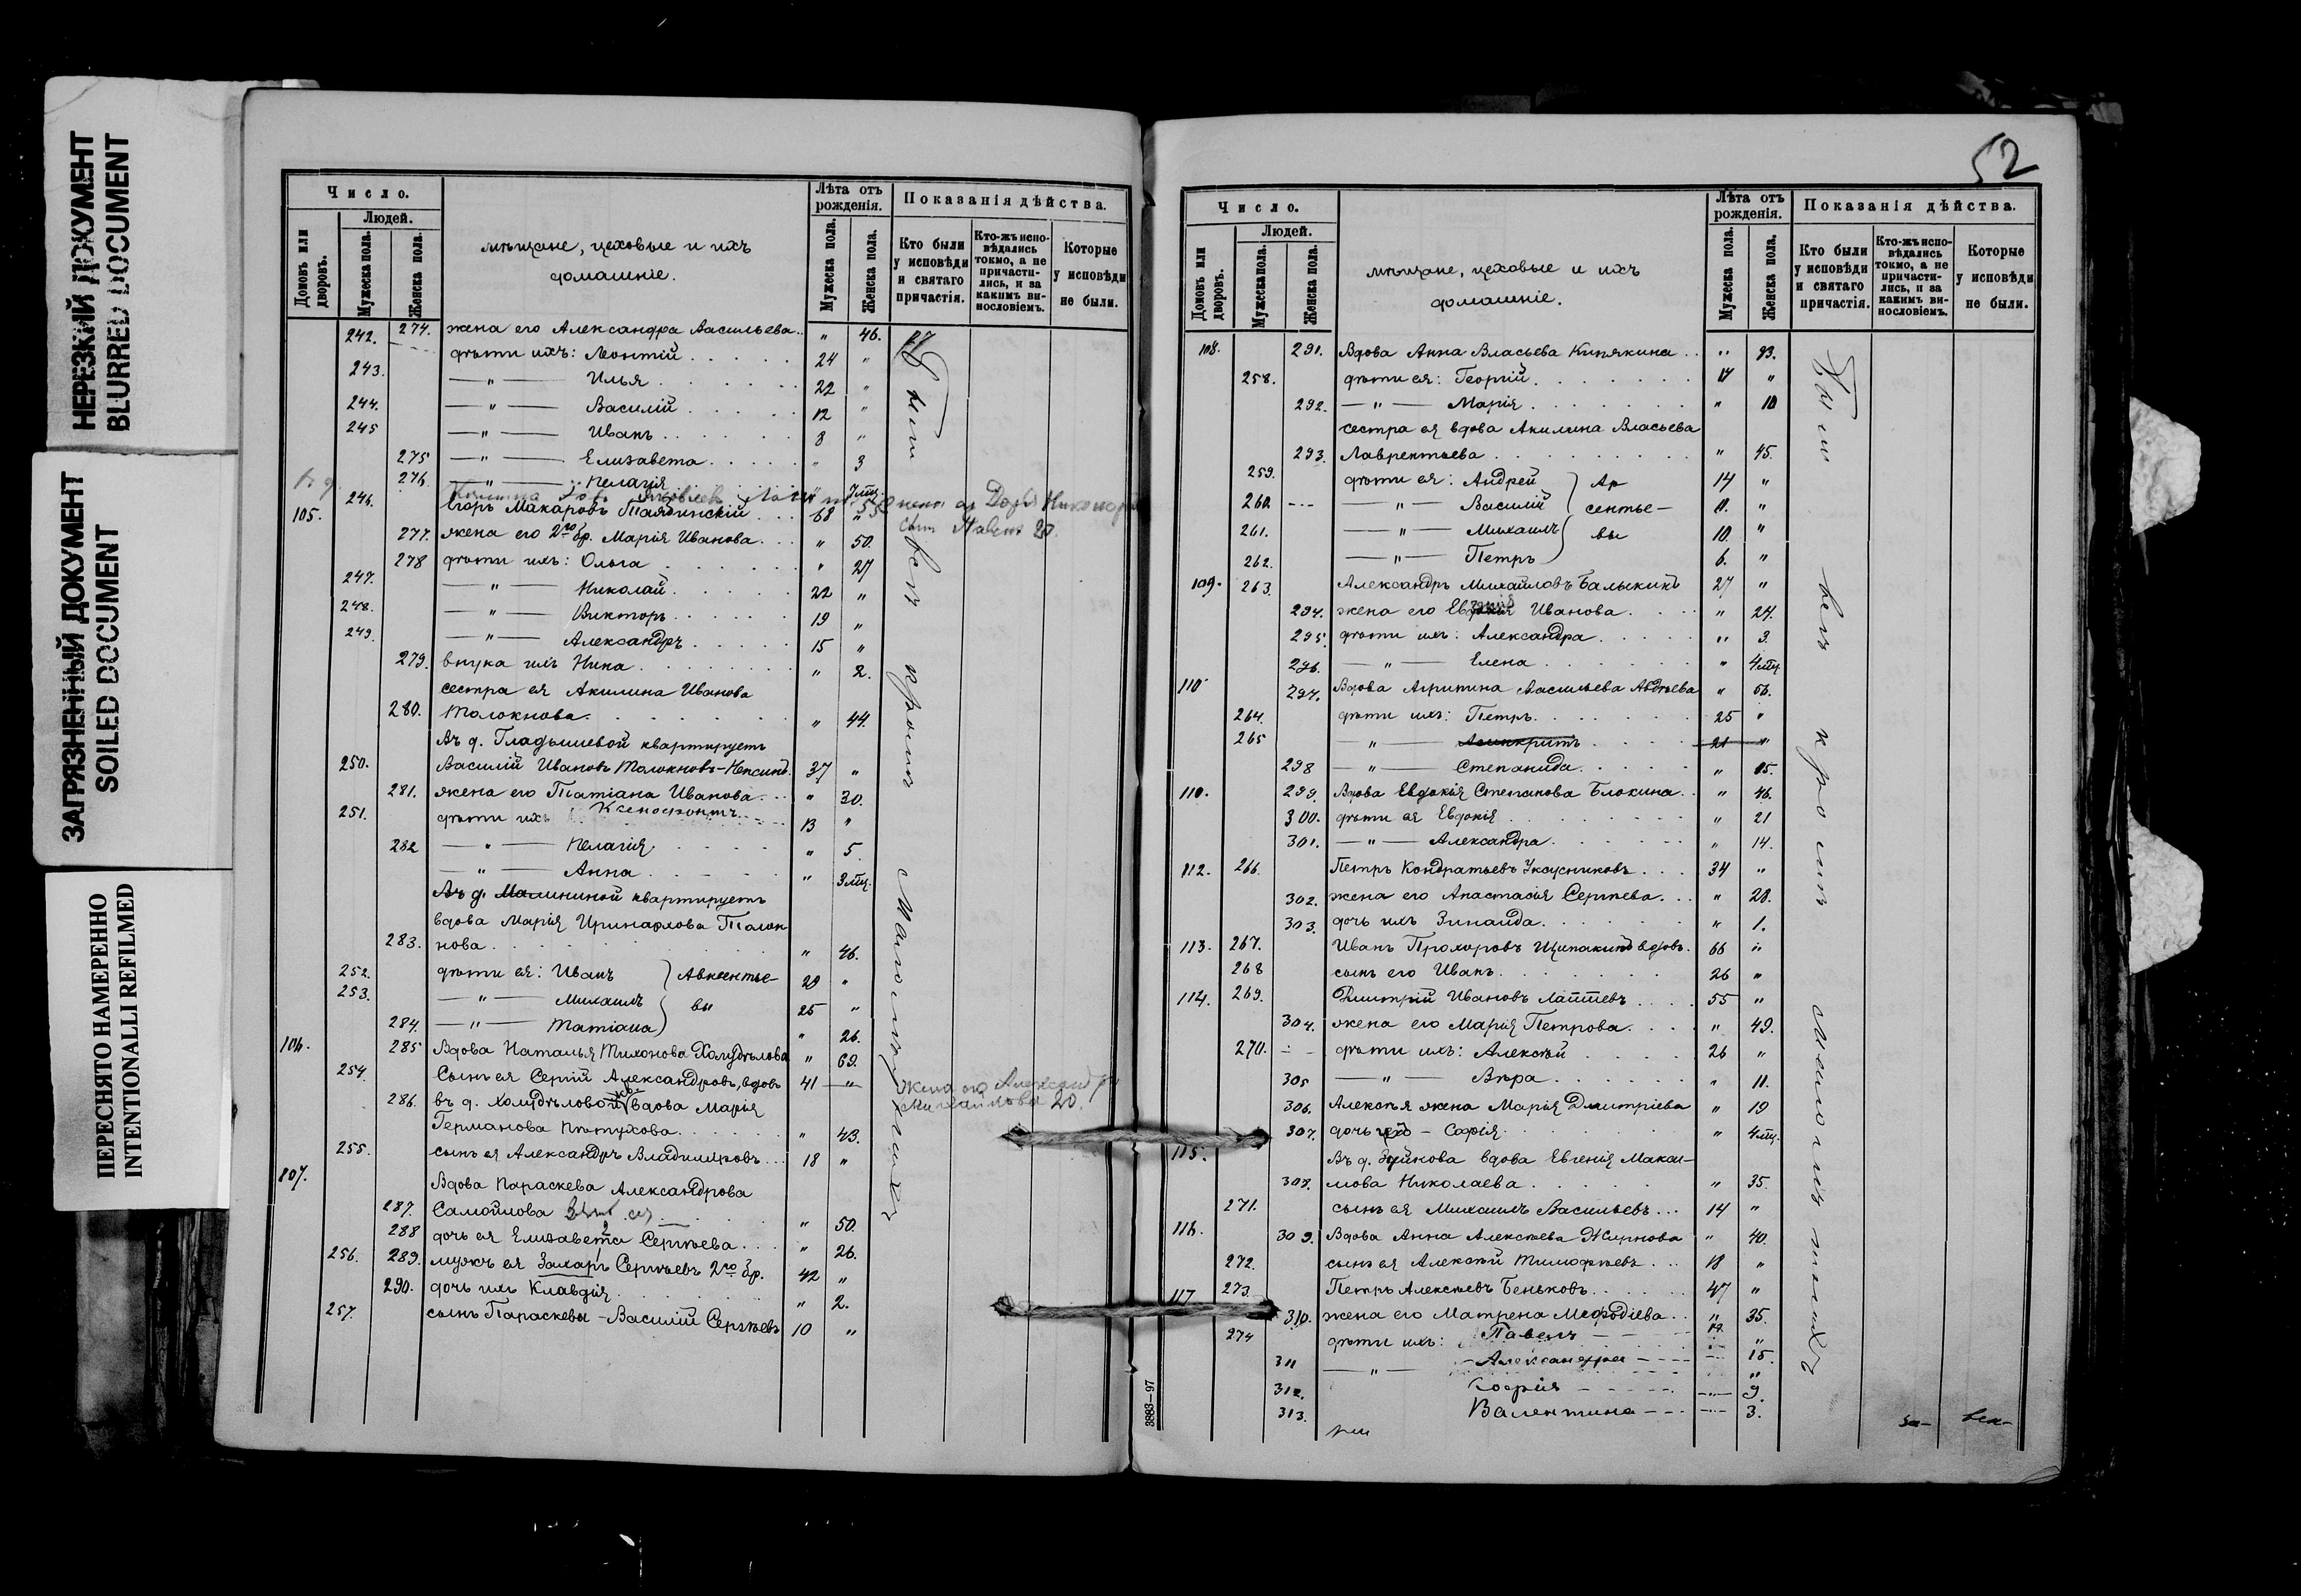 НЕРЕЗКИЙ ДОКУМЕНТ
BLURRED DOCUMENT
ЗАГРЯЗНЕННЫЙ ДОКУМЕНТ
SOILED DOCUMENT
ПЕРЕСНЯТО НАМЕРЕННО
INTENTIONALLI REFILMED
Число.
Людей.
Домовъ или дворовъ.
Мужеска пола.
Женска пола.
мѣщане, цеховые и ихъ
домашніе.
Лѣта отъ рожденія.
Мужеска пола.
Женска пола.
Показанія дѣйства.
Кто были у исповѣди и святаго причастія.
Кто-жъ исповѣдались токмо, а не причастились, и за какимъ винословіемъ.
Которые у исповѣди не были.
274. жена его Александра Васильева " 46.
242. дѣти ихъ: Леонтій 24 "
243. —"— Илья 22 "
244. —"— Василій 12 "
245 —"— Иванъ 8 "
275 —"— Елизавета " 3
276. —"— Пелагія " 7 мц.
105. 246. Егоръ Макаровъ 68 "
277. жена его 2го бр. Марія Иванова " 50.
278 дѣти ихъ: Ольга " 27
247. —"— Николай 22 "
248. —"— Викторъ 19 "
249. —"— Александръ 15 "
279. внука ихъ Нина " 2.
сестра ея Акилина Иванова
280. Толокнова " 44.
Въ д. Гладышевой квартируетъ
250. Василій Ивановъ Толокновъ 37 "
281. жена его Татіана Иванова " 30.
251. дѣти ихъ Ксенофонтъ 13 "
282 —"— Пелагія " 5.
—"— Анна " 3 мц.
Въ д. Малининой квартируетъ
вдова Марія Иринархова Толок
283. нова " 46.
252. дѣти ея: Иванъ Авксентье- 29 "
253. —"— Михаилъ вы 25 "
284. —"— Татіана " 26.
106. 285 Вдова Наталья Тихонова Холудѣлова " 69.
254. Сынъ ея Сергій Александровъ, вдовъ 41 —"—
жена его Александра
Михайлова 20.
286. въ д. Холудѣловой вдова Марія
Германова Пѣтухова " 43.
255. сынъ ея Александръ Владиміровъ 18 "
107. Вдова Параскева Александрова
287. Самойлова " 50.
288 дочь ея Елизавета Сергѣева " 26.
256. 289. мужъ ея Захаръ Сергѣевъ 2го бр. 42 "
290. дочь ихъ Клавдія " 2.
257. сынъ Параскевы - Василій Сергѣевъ 10 "
Были всѣ кромѣ малолѣтнихъ
52
Число.
Людей.
Домовъ или дворовъ.
Мужеска пола.
Женска пола.
мѣщане, цеховые и ихъ
домашніе.
Лѣта отъ рожденія.
Мужеска пола.
Женска пола.
Показанія дѣйства.
Кто были у исповѣди и святаго причастія.
Кто-жъ исповѣдались токмо, а не причастились, и за какимъ винословіемъ.
Которые у исповѣди не были.
108. 291. Вдова Анна Власьева Кипякина "
258. дѣти ея: Георгій 17 "
292. —"— Марія " 10
сестра ея вдова Акилина Власьева
293. Лаврентьева " 45.
259. дѣти ея: Андрей Ар 14 "
260. —"— Василій сентье-
261. —"— Михаилъ вы 10. "
262. —"— Петръ 6. "
109. 263. Александръ Михайловъ Балыкинъ 27 "
294. жена его Иванова " 24.
295. дѣти ихъ: Александра " 3.
296. —"— Елена " 4 мц.
110 297. Вдова Агрипина Васильева Авдѣева " 56.
264. дѣти ихъ: Петръ 25 "
265 —"— Асинкритъ 21 "
298 —"— Степанида " 15.
110. 299. Вдова Евдокія Степанова Блокина " 46.
300. дѣти ея Евдокія " 21
301. —"— Александра " 14.
112. 266. Петръ Кондратьевъ Уксусниковъ 34 "
302. жена его Анастасія Сергѣева " 28.
303. дочь ихъ Зинаида " 1.
113. 267. Иванъ Прохоровъ Щипакинъ вдовъ. 66 "
268 сынъ его Иванъ 26 "
114. 269. Дмитрій Ивановъ Лаптевъ 55 "
304. жена его Марія Петрова " 49.
270. дѣти ихъ: Алексѣй 26 "
305 —"— Вѣра " 11.
306. Алексѣя жена Марія Дмитріева " 19
307. дочь его - Софія " 4 мц.
115. Въ д. Зуйкова вдова Евгенія Макси-
308. мова Николаева " 35.
271. сынъ ея Михаилъ Васильевъ 14 "
116. 309. Вдова Анна Алексѣева Жирнова " 40.
272. сынъ ея Алексѣй Тимофѣевъ 18 "
117 273. Петръ Алексѣевъ Беньковъ 47 "
310. жена его Матрена Меѳодіева " 35.
274 дѣти ихъ: Павелъ
311 —"— Александра 15.
312. Софія 9.
313. Валентина 3.
Были всѣ кромѣ малолѣтнихъ
3883—97